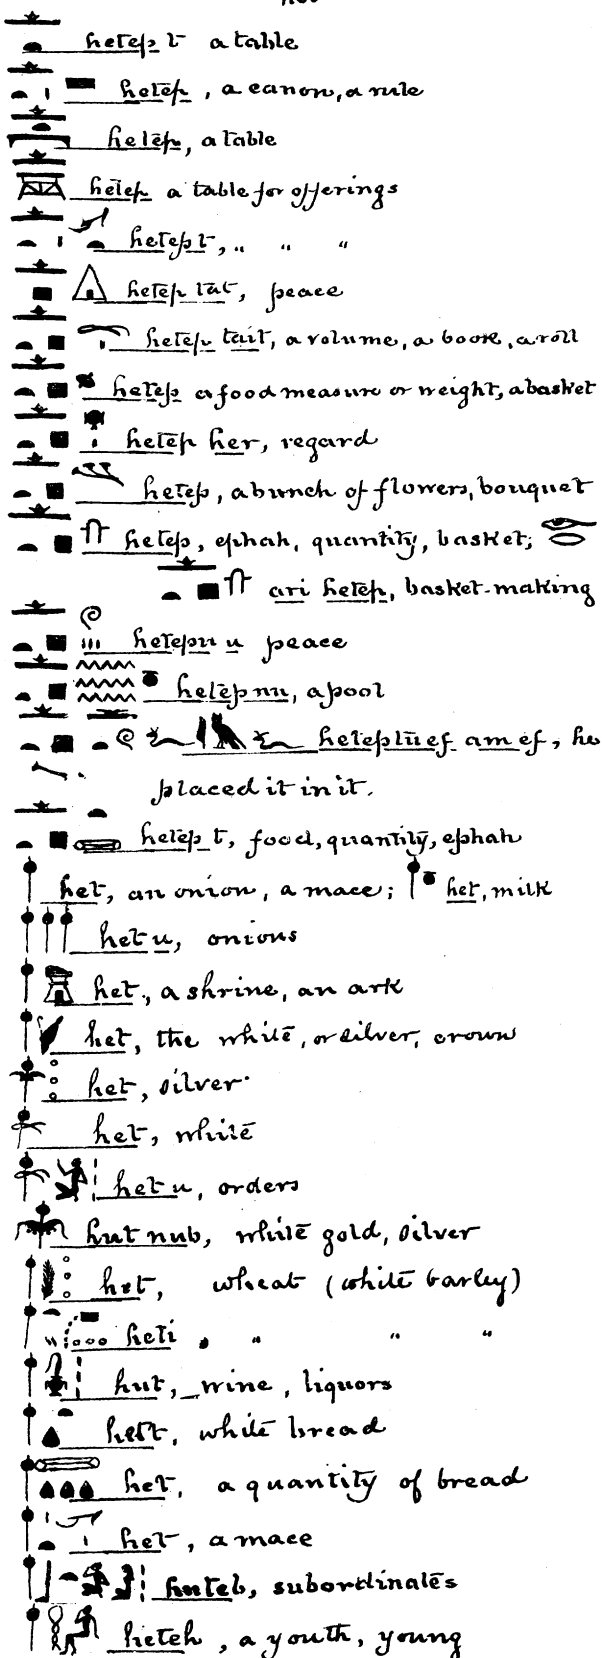 hetep t a table
hetep, a canon, a rule
hetep, a table
hetep a table for offerings
hetept, „ „ „
hetep tat, peace
hetep tait, a volume, a book, a roll
hetep a food measure or weight, a basket
hetep her, regard
hetep, a bunch of flowers, bouquet
hetep, ephah, quantity, basket;
ari hetep, basket-making
hetepu u peace
hetep nu, a pool
heteptuef am ef, he
placed it in it.
hetep t, food, quantity, ephah
het, an onion, a mace; het, milk
het u, onions
het, a shrine, an ark
het, the white, or silver, crown
het, silver
het, white
het u, orders
hut nub, white gold, silver
het, wheat (white barley)
heti, „ „ „
hut, wine, liquors
hett, white bread
het, a quantity of bread
het, a mace
huteb, subordinates
heteh, a youth, young